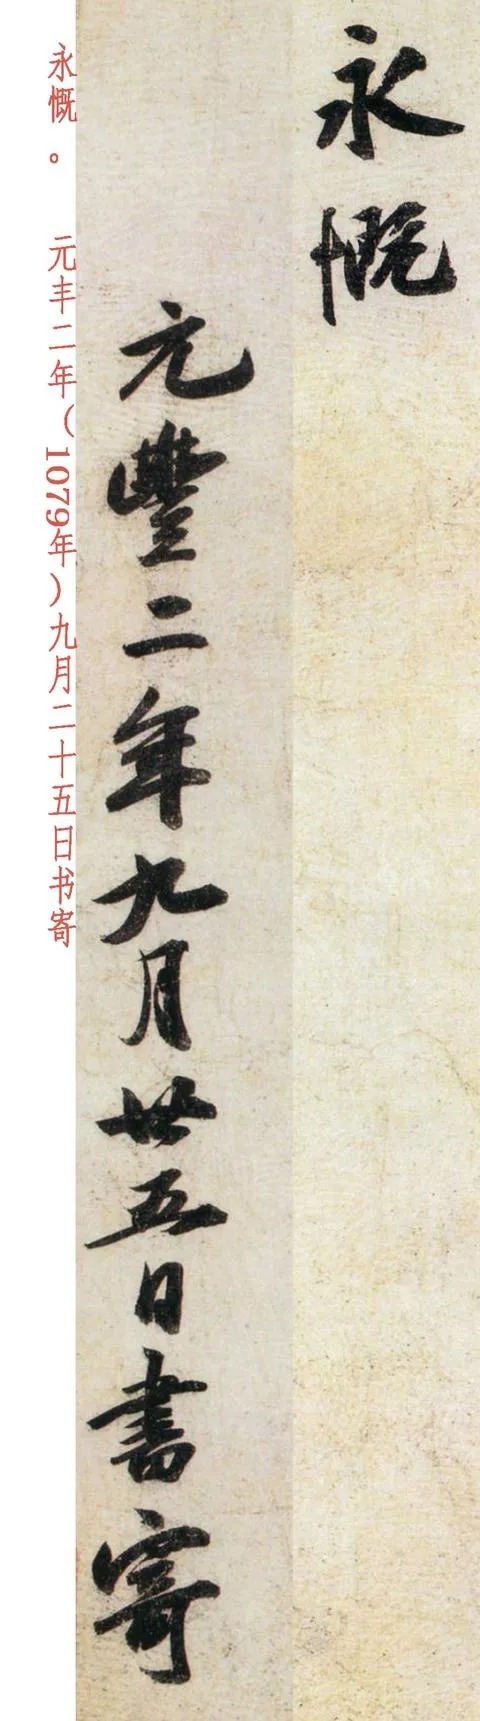 永慨
元豐二年九月廿五日書寄
永慨。 元丰二年(1079年)九月二十五日书寄